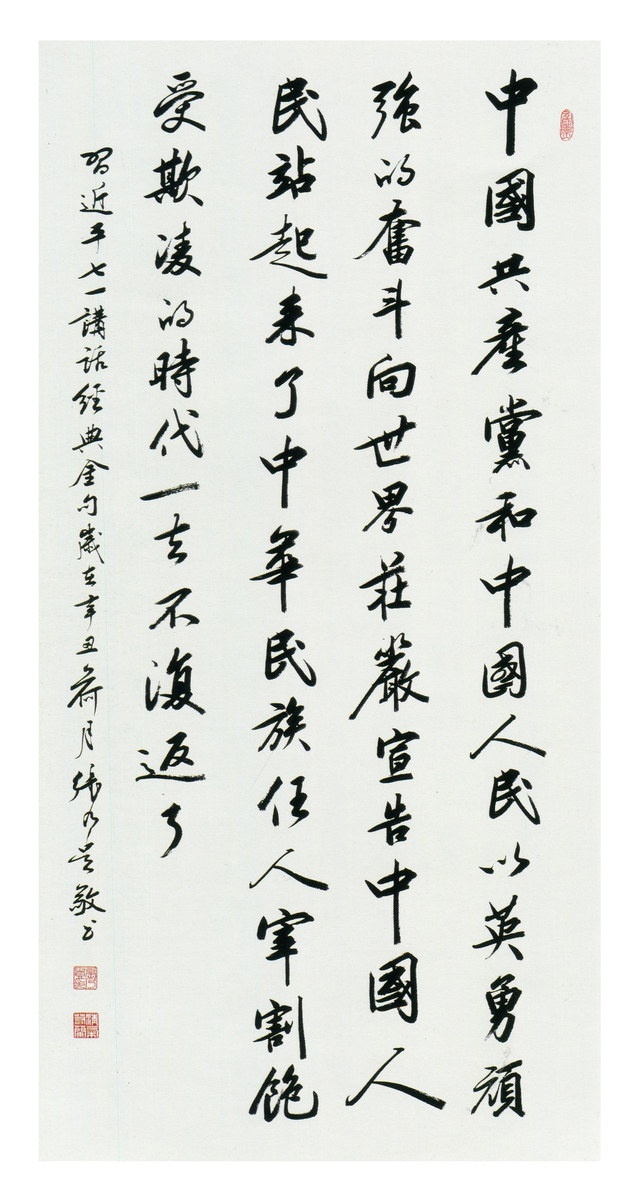 中國共產黨和中國人民以英勇頑
強的奮斗向世界莊嚴宣告中國人
民站起来了中華民族任人宰割飽
受欺凌的時代一去不復返了
習近平七一講話經典金句歲在辛丑荷月張乃敬书